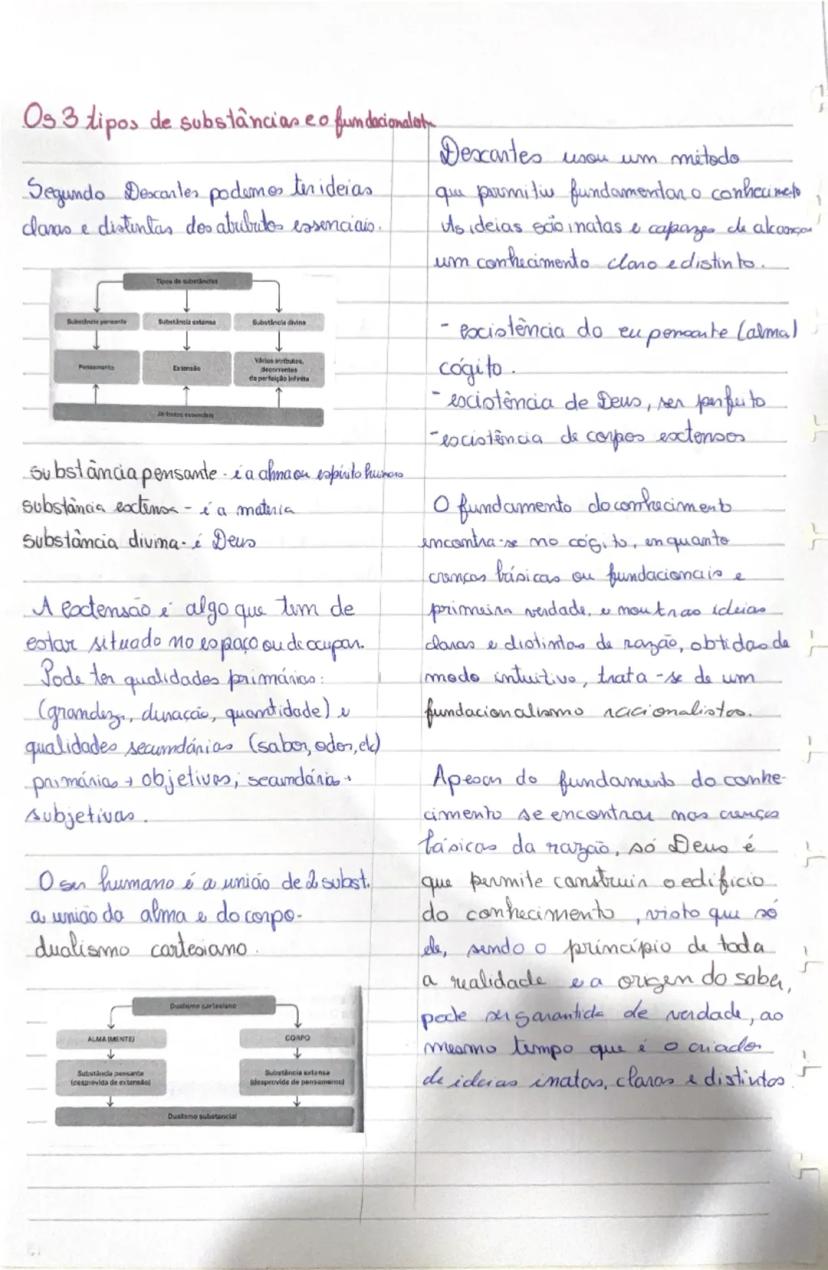 Os 3 tipos de substâncias e o fundacionalot
Segundo Descartes podemos ter ideias
claras e distintas dos atributos essenciais.
Tipos de substâncias
Substância pensante Substância extensa Substância divina
Pensamento Extensão Vários atributos, decorrentes da perfeição infinita
Atributos essenciais
substância pensante - é a alma ou espírito humano
substância extensa - é a matéria
substância divina - é Deus
A extensão é algo que tem de
estar situado no espaço ou de ocupar.
Pode ter qualidades primárias:
(grandeza, duração, quantidade) e
qualidades secundárias (sabor, odor, etc)
primárias → objetivas; secundárias →
subjetivas.
O ser humano é a união de 2 subst.
a união da alma e do corpo-
dualismo cartesiano.
Dualismo cartesiano
ALMA (MENTE) CORPO
Substância pensante (desprovida de extensão) Substância extensa (desprovida de pensamento)
Dualismo substancial
Descartes usou um método
que permitiu fundamentar o conhecimeto
As ideias são inatas e capazes de alcançar
um conhecimento claro e distinto.
- existência do eu pensante (alma)
cógito.
- existência de Deus, ser perfeito
- existência de corpos extensos
O fundamento do conhecimento
encontra-se no cógito, enquanto
crenças básicas ou fundacionais e
primeira verdade, e noutras ideias
claras e distintas da razão, obtidas de
modo intuitivo, trata-se de um
fundacionalismo racionalistas.
Apesar do fundamento do conhe-
cimento se encontrar nas crenças
básicas da razão, só Deus é
que permite construir o edifício
do conhecimento, visto que só
ele, sendo o princípio de toda
a realidade e a origem do saber,
pode ser garantida de verdade, ao
mesmo tempo que é o criador
de ideias inatas, claras e distintas.